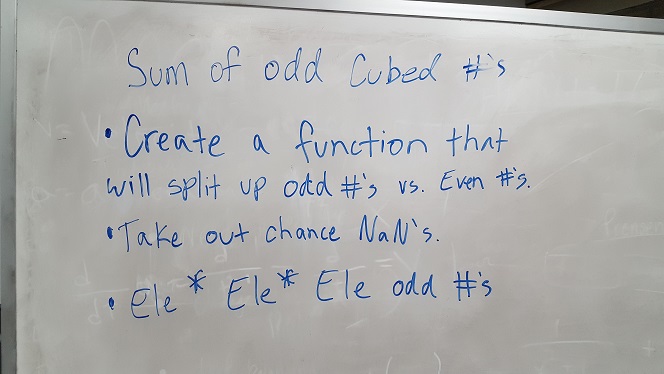 Sum of odd Cubed #'s
• Create a function that
will split up odd #'s vs. Even #'s.
• Take out chance NaN's.
• Ele * Ele * Ele odd #'s